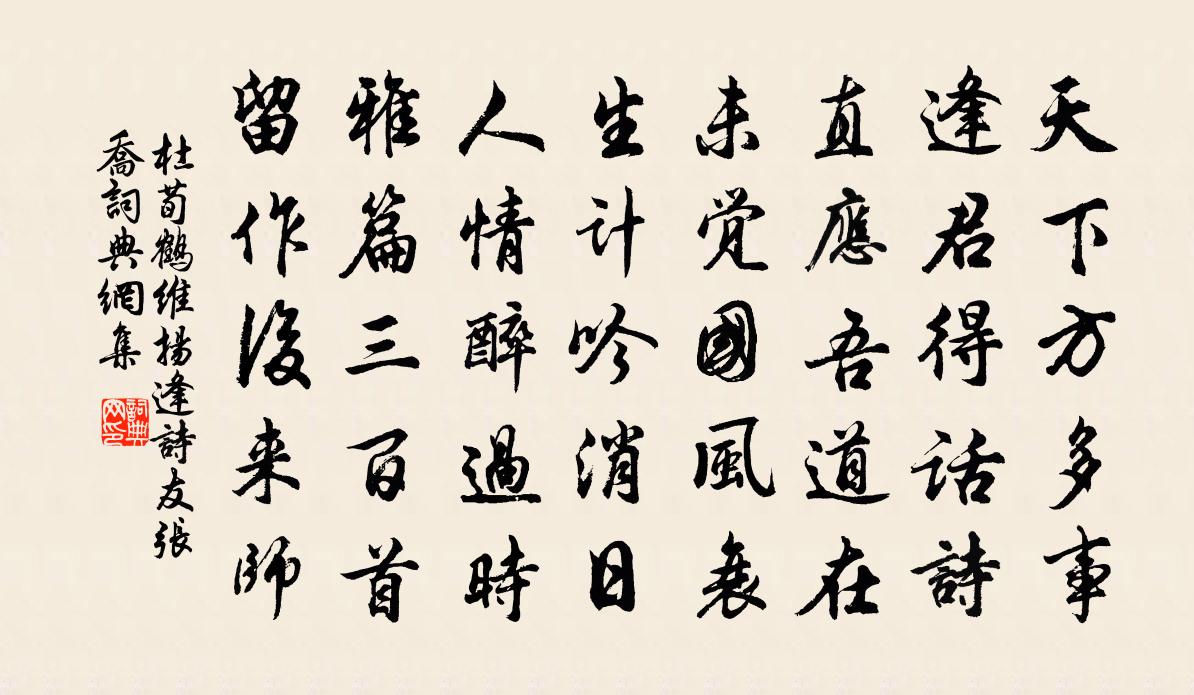 天下方多事
逢君得話詩
直應吾道在
未覺國風衰
生計吟消日
人情醉過時
雅篇三百首
留作後来師
杜荀鶴維揚逢詩友張
喬詞典網集
詞典网印